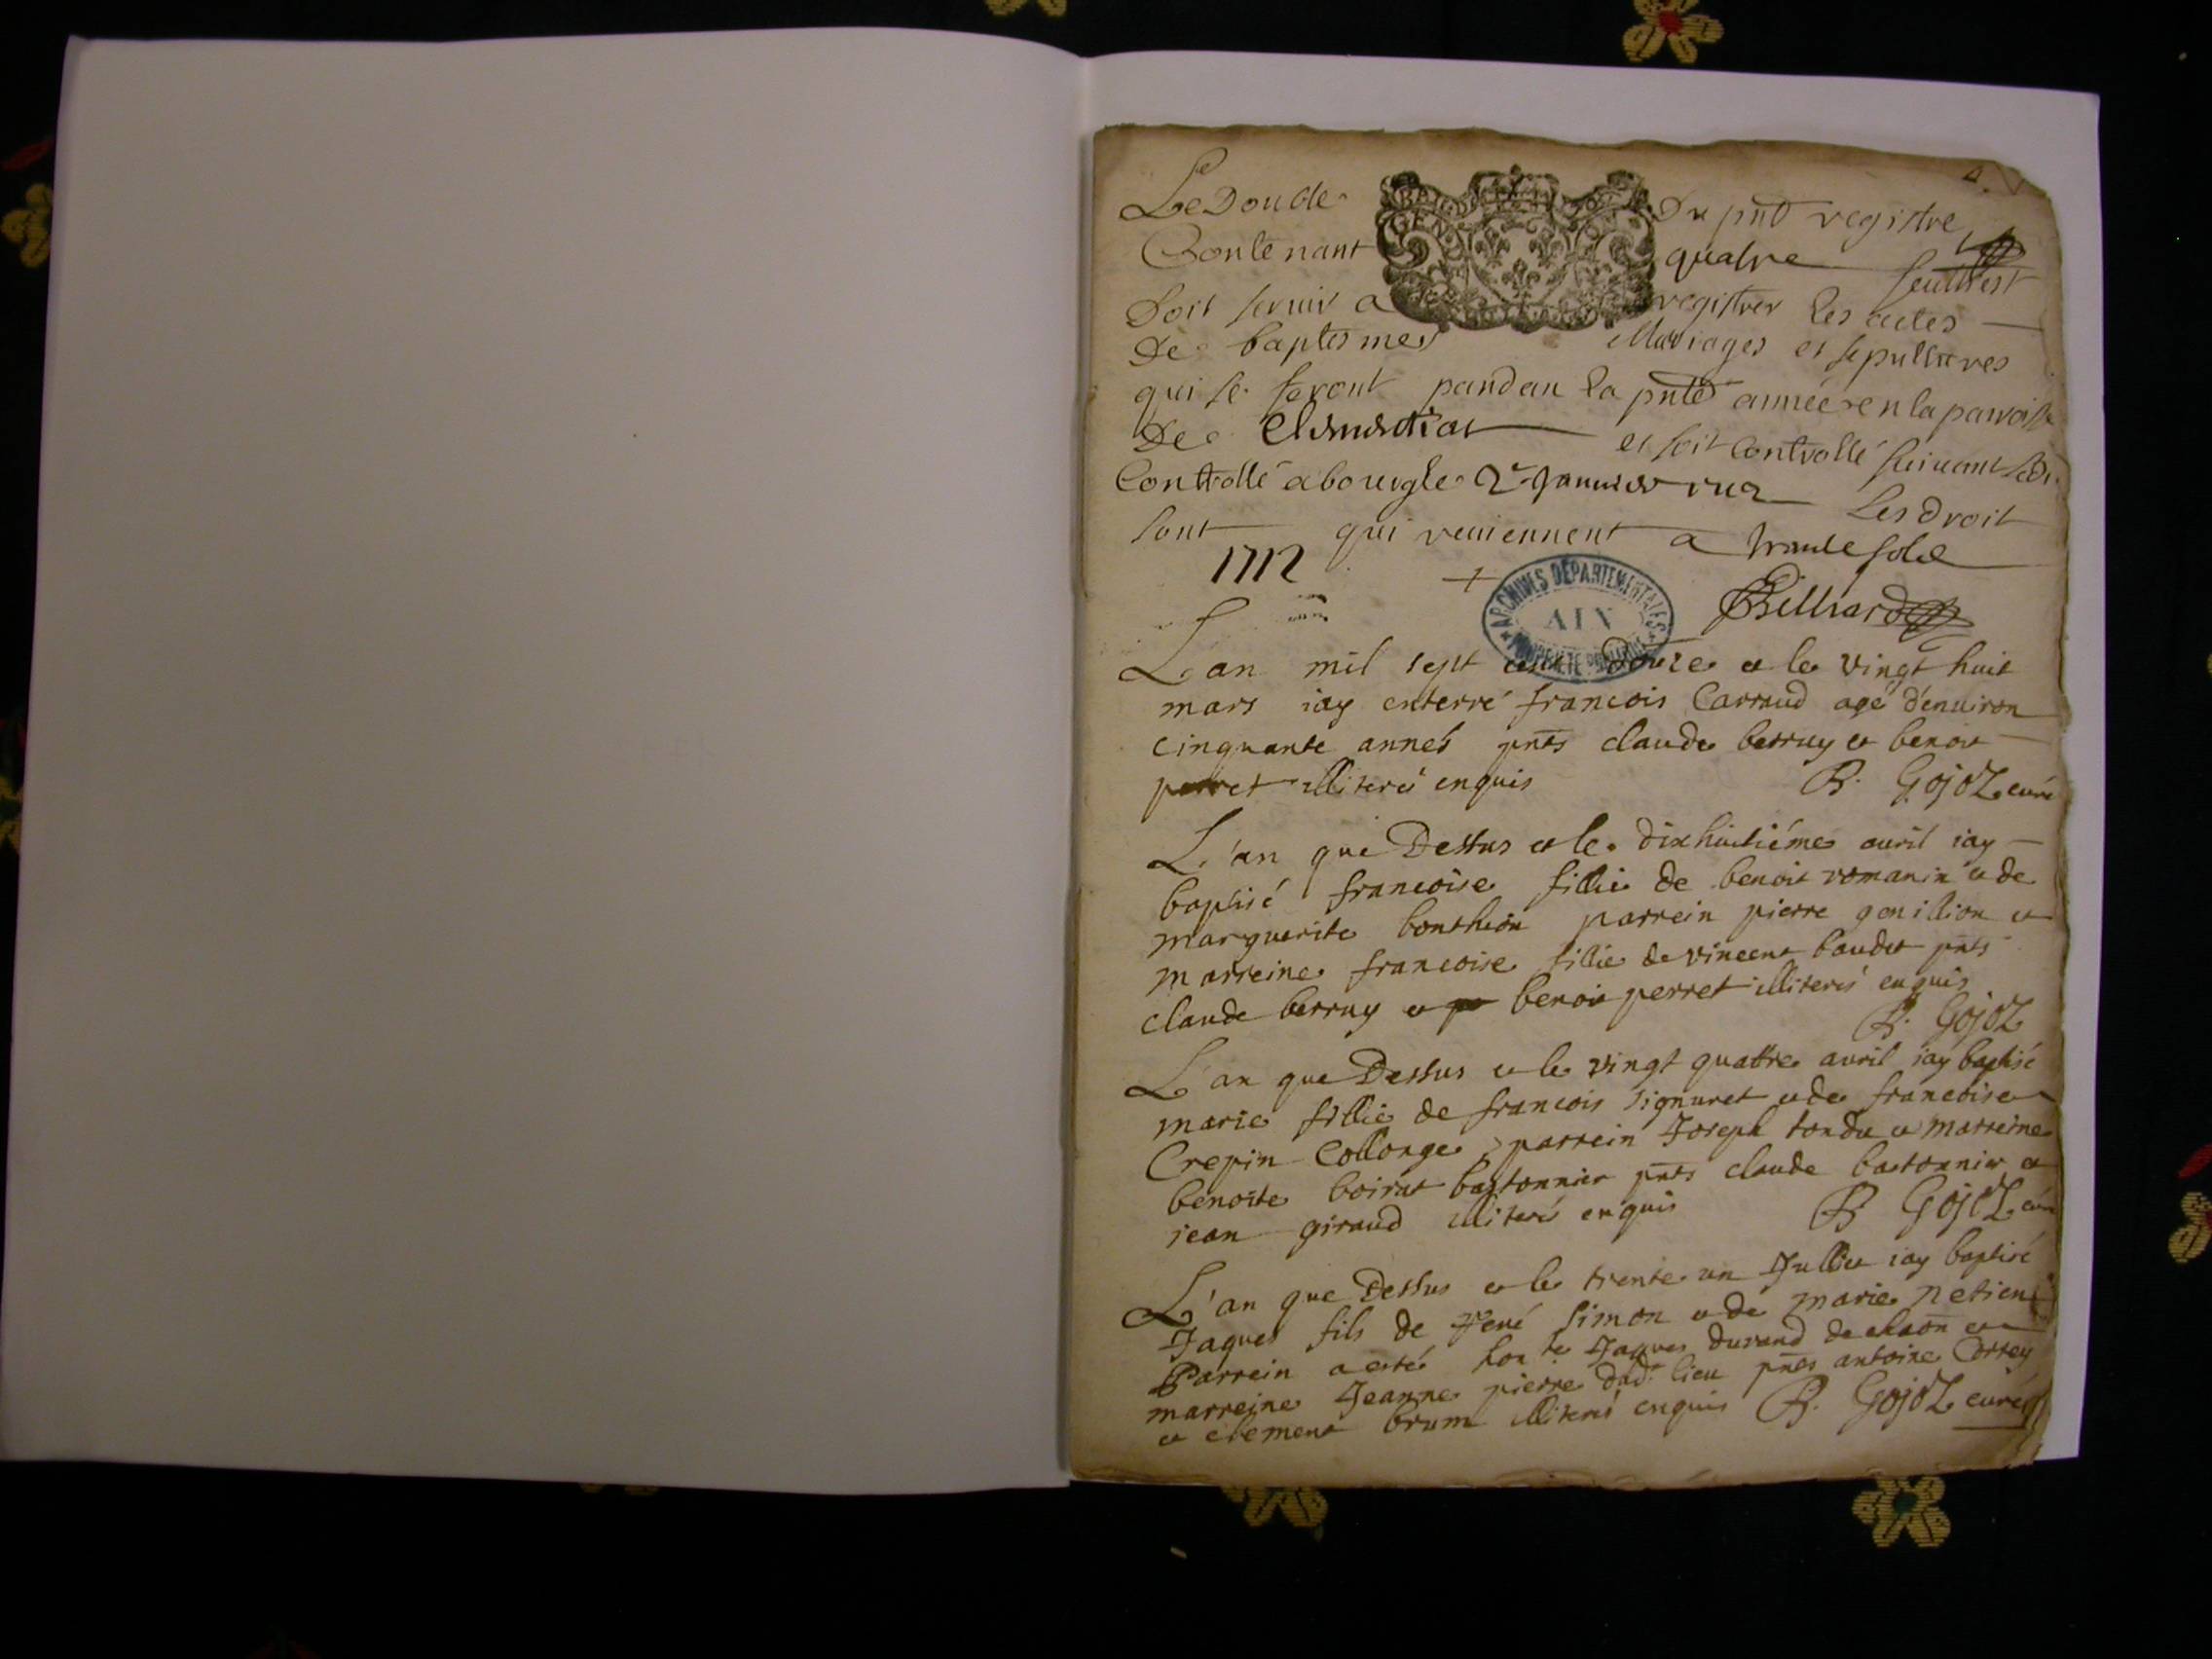 4.
Le Double Du pnt registre
Contenant quatre feuillest
Doit servir a registrer les actes
De baptesmes Mariages et sepultures
qui se feront pandan la pnte année en la parroisse
De et soit Controllé suivant
Controllé a bourg le 2e Janvier 1712 Les droit
sont qui reviennent a trante sols
1712
Billiard
ARCHIVES DÉPARTEMENTALES
AIN
L'an mil sept cent douze et le vingt huit
mars iay enterré francois Carraud agé d'enuiron
cinquante anneés pnts claude berruy et benoit
perret illiterés enquis B. Gojoz curé
L'an que Dessus et le dixhuitiéme auril iay
baptisé francoise fillie de benoit romanin et de
marguerite bonthion parrein pierre genillion et
marreine francoise fillie de vincent baudet pnts
claude berruy et benoit perret illiterés enquis
B. Gojoz
L'an que Dessus et le vingt quattre avril iay baptisé
marie fillie de francois signuret et de francoise
Crepin Collonge parrein Joseph tondu et marreine
benoite boirat bastonnier pnts claude bastonnier et
jean giraud illiterés enquis B Gojoz curé
L'an que Dessus et le trente un Jullet iay baptisé
Jaques fils de René Simon et de marie
Parrein a esté hon.te Jaques durand de et
marreine Jeanne pierre dud. lieu pnts antoine Correy
et clement brum illiterés enquis B. Gojoz curé